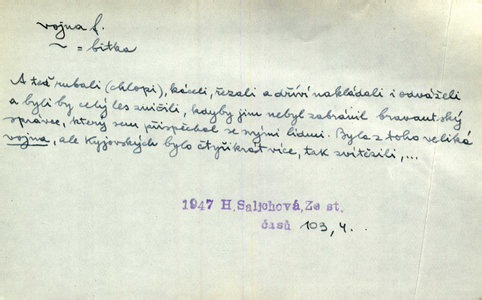 vojna f.
~ = bitka
A teď rubali (chlopi), káceli, řezali a dříví nakládali i odváželi
a byli by celý les zničili, kdyby jim nebyl zabránil bravantský
správce, který sem přispěchal se svými lidmi. Byla z toho veliká
vojna, ale Kyjovských bylo čtyřikrát více, tak zvítězili, ...
1947 H. Salichová, Ze st.
časů 103, 4.